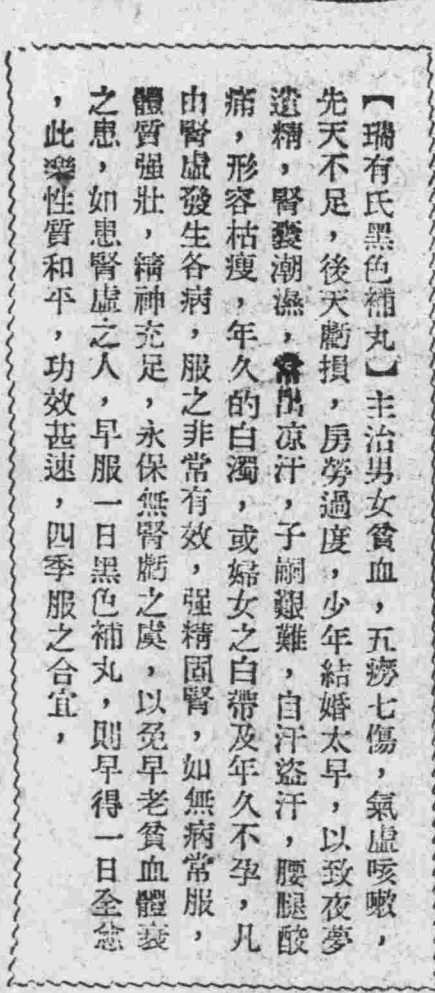 【瑞有氏黑色補丸】主治男女貧血，五癆七傷，氣虛咳嗽，
先天不足，後天虧損，房勞過度，少年結婚太早，以致夜夢
遺精，腎囊潮濕，常出凉汗，子嗣艱難，自汗盜汗，腰腿酸
痛，形容枯瘦，年久的白濁，或婦女之白帶及年久不孕，凡
由腎虛發生各病，服之非常有效，强精固腎，如無病常服，
體質强壯，精神充足，永保無腎虧之虞，以免早老貧血體衰
之患，如患腎虛之人，早服一日黑色補丸，則早得一日全愈
，此藥性質和平，功效甚速，四季服之合宜，